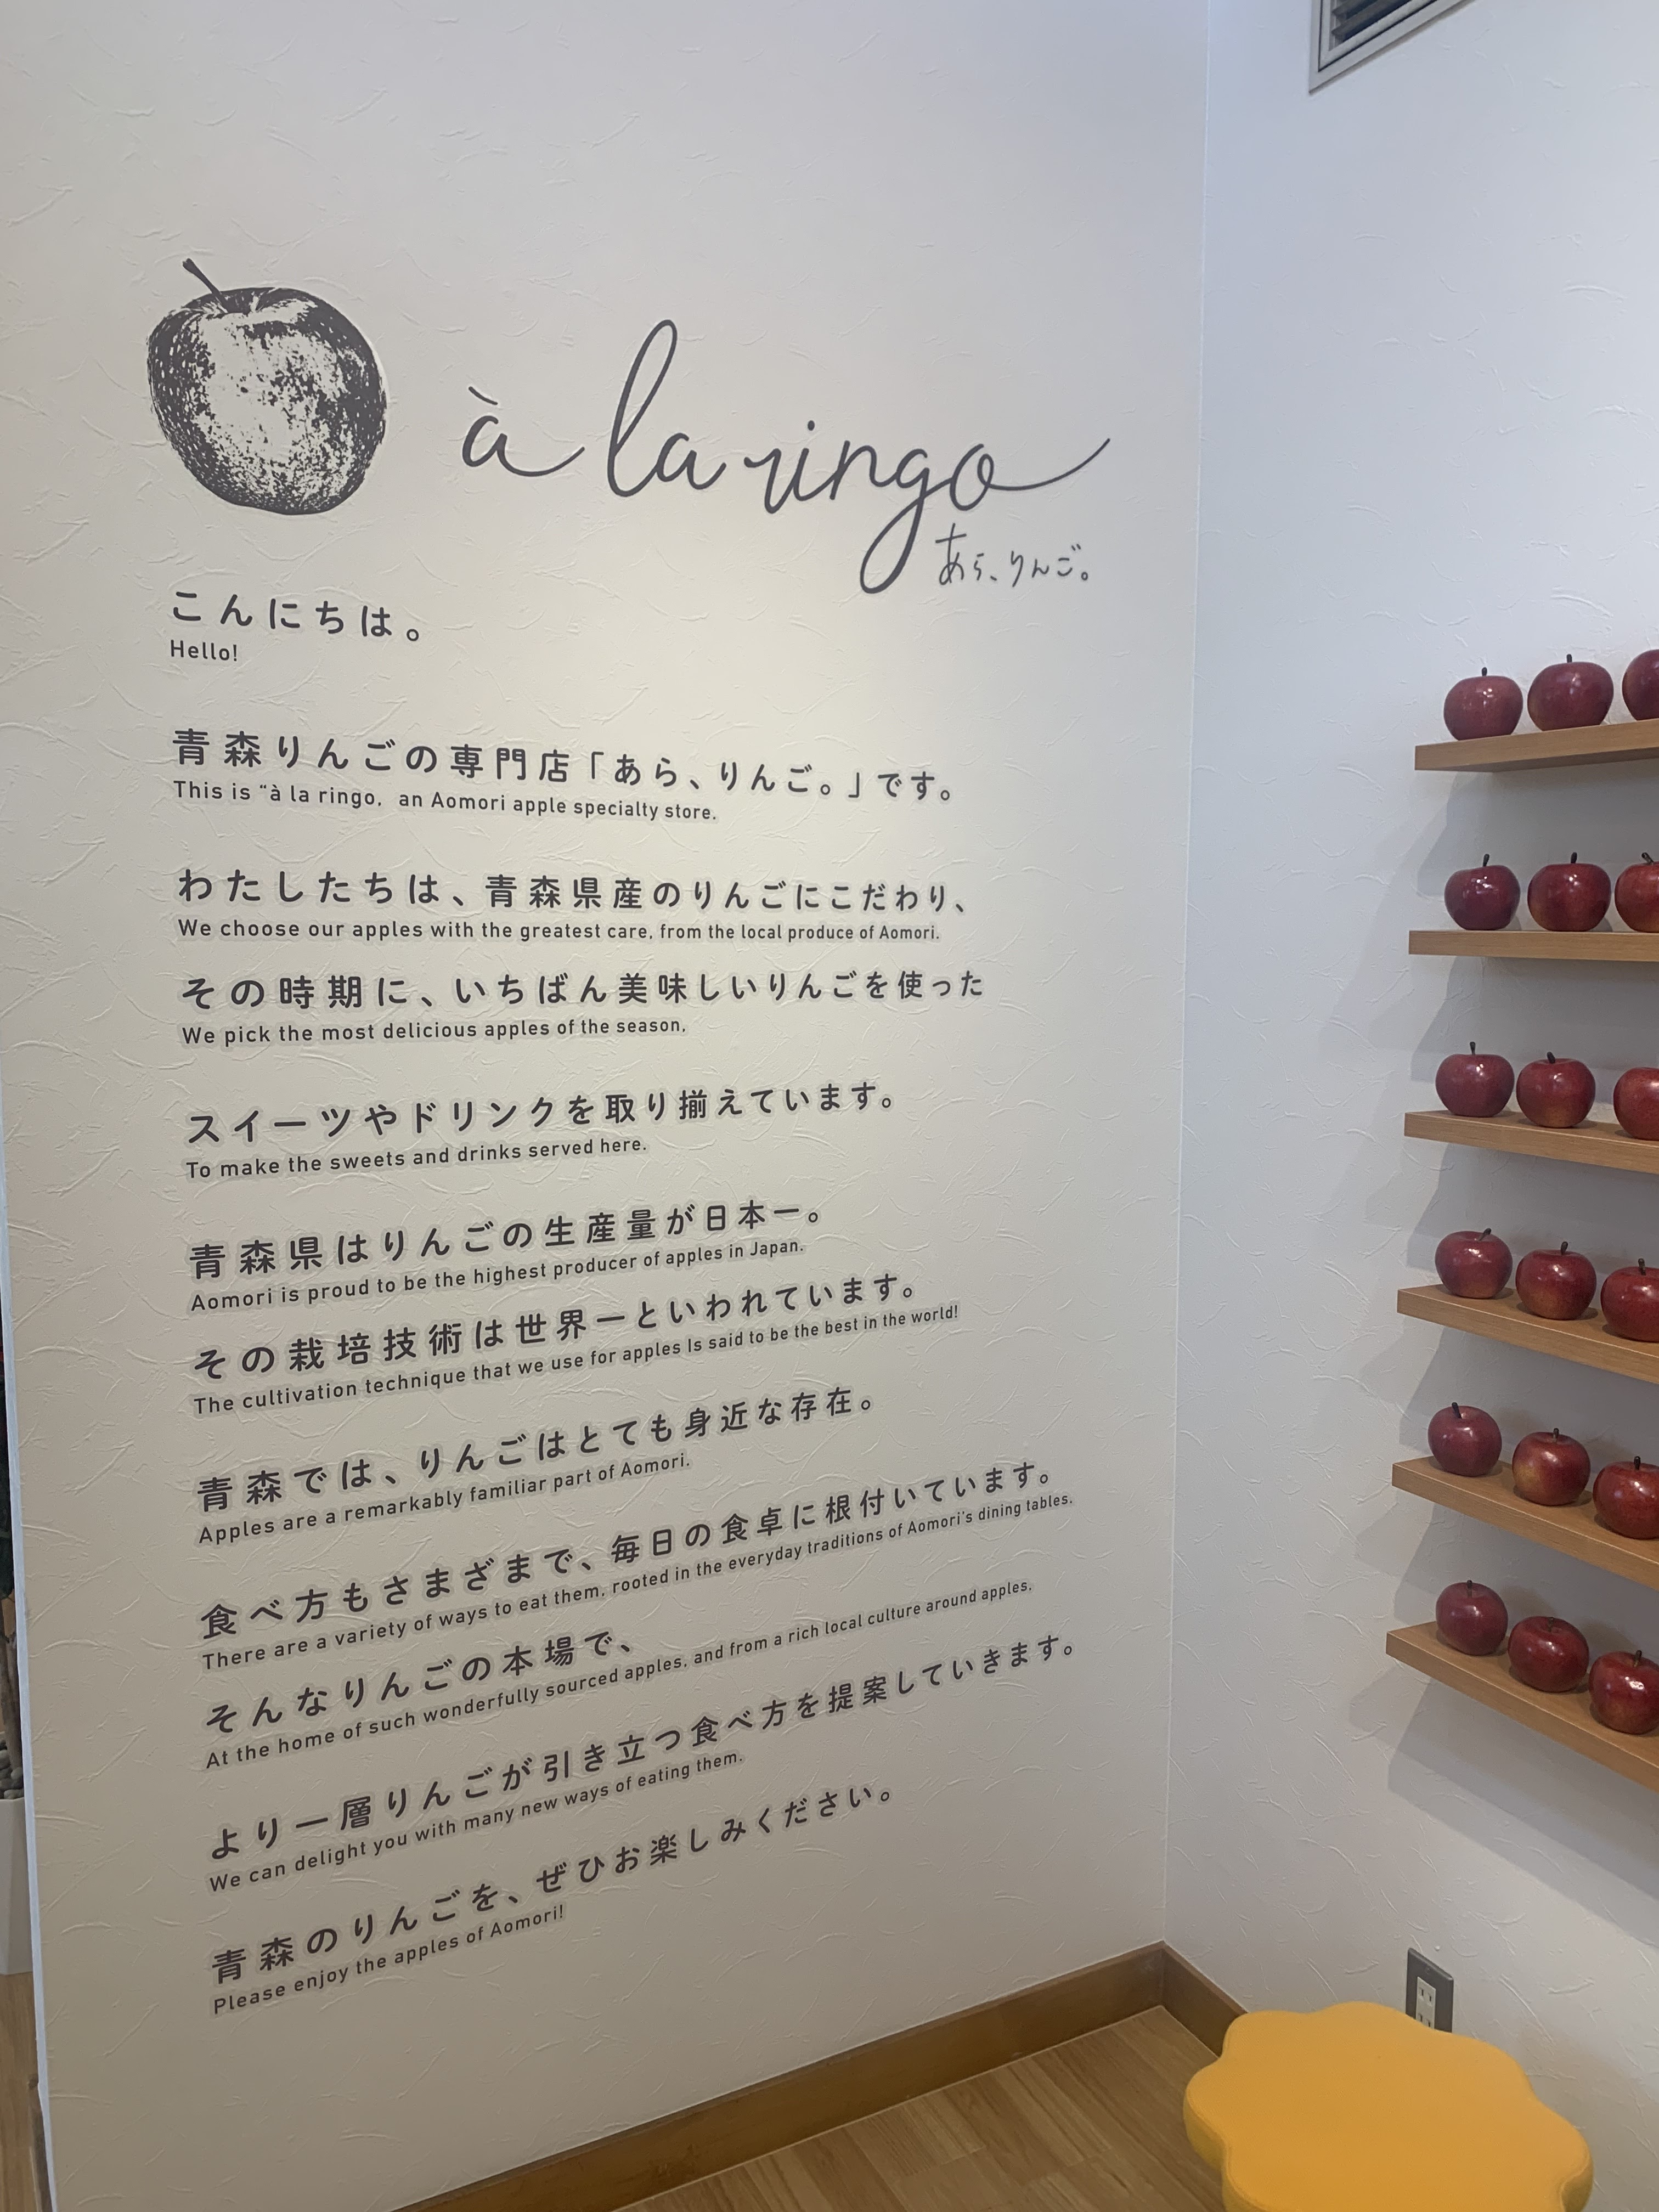 à la ringo
あら、りんご。
こんにちは。
Hello!
青森りんごの専門店「あら、りんご。」です。
This is “à la ringo, an Aomori apple specialty store.
わたしたちは、青森県産のりんごにこだわり、
We choose our apples with the greatest care, from the local produce of Aomori.
その時期に、いちばん美味しいりんごを使った
We pick the most delicious apples of the season,
スイーツやドリンクを取り揃えています。
To make the sweets and drinks served here.
青森県はりんごの生産量が日本一。
Aomori is proud to be the highest producer of apples in Japan.
その栽培技術は世界一といわれています。
The cultivation technique that we use for apples Is said to be the best in the world!
青森では、りんごはとても身近な存在。
Apples are a remarkably familiar part of Aomori.
食べ方もさまざまで、毎日の食卓に根付いています。
There are a variety of ways to eat them, rooted in the everyday traditions of Aomori's dining tables.
そんなりんごの本場で、
At the home of such wonderfully sourced apples, and from a rich local culture around apples,
より一層りんごが引き立つ食べ方を提案していきます。
We can delight you with many new ways of eating them.
青森のりんごを、ぜひお楽しみください。
Please enjoy the apples of Aomori!